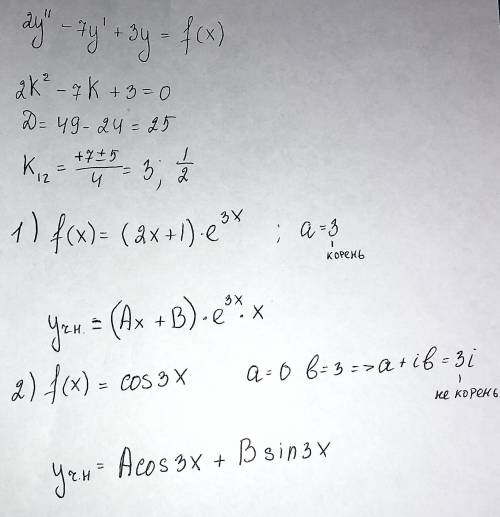 2y'' - 7y' + 3y = f(x)
2K² - 7K + 3 = 0
D = 49 - 24 = 25
K₁₂ = (+7 ± 5)/4 = 3; 1/2
1) f(x) = (2x + 1) · e^{3x} ; a = 3
корень
yч.н. = (Ax + B) · e^{3x} · x
2) f(x) = cos 3x a = 0 b = 3 => a + ib = 3i
не корень
yч.н = A cos 3x + B sin 3x